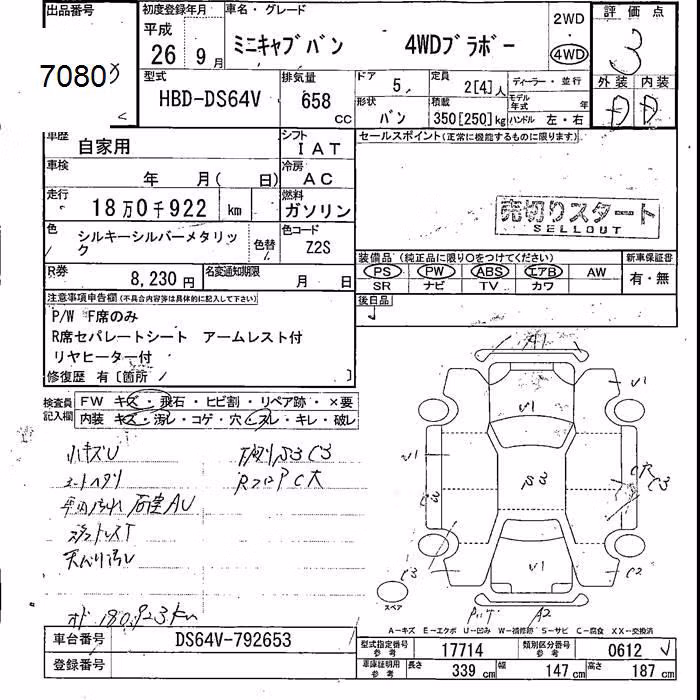 出品番号
7080
初度登録年月
平成
26年9月
車名・グレード
ミニキャブバン 4WDブラボー
2WD
4WD
評価点
3
型式
HBD-DS64V
排気量
658
CC
ドア
5
定員
2[4]人
ディーラー・並行
形状
バン
積載
350[250]kg
モデル年式 年
ハンドル 左・右
外装 内装
車歴
自家用
シフト
IAT
セールスポイント(正常に機能するものに限ります。)
車検
年 月( 日)
冷房
AC
走行
18万0千922 km
燃料
ガソリン
売切りスタート
SELLOUT
色
シルキーシルバーメタリック
色替
色コード
Z2S
装備品(純正品に限り○をつけてください)
新車保証書
PS PW ABS エアB AW
有・無
SR ナビ TV カワ
R券
8,230円
名変通知期限
月 日
後日品
注意事項申告欄(不具合内容等は具体的に記入して下さい)
P/W F席のみ
R席セパレートシート アームレスト付
リヤヒーター付
修復歴 有[箇所 ]
検査員記入欄
FW キズ・飛石・ヒビ割・リペア跡・×要
内装 キズ・汚レ・コゲ・穴・スレ・キレ・破レ
小キズU
天バリ汚レ
オド 180,923km
A1
V1
V1
V1
C3
C3
C3
C2
V1
A2
スペア
A-キズ E-エクボ U-凹み W-補修跡 S-サビ C-腐食 XX-交換済
車台番号
DS64V-792653
登録番号
型式指定番号参考
17714
類別区分番号参考
0612
車庫証明用参考
長さ 339 cm
幅 147 cm
高さ 187 cm